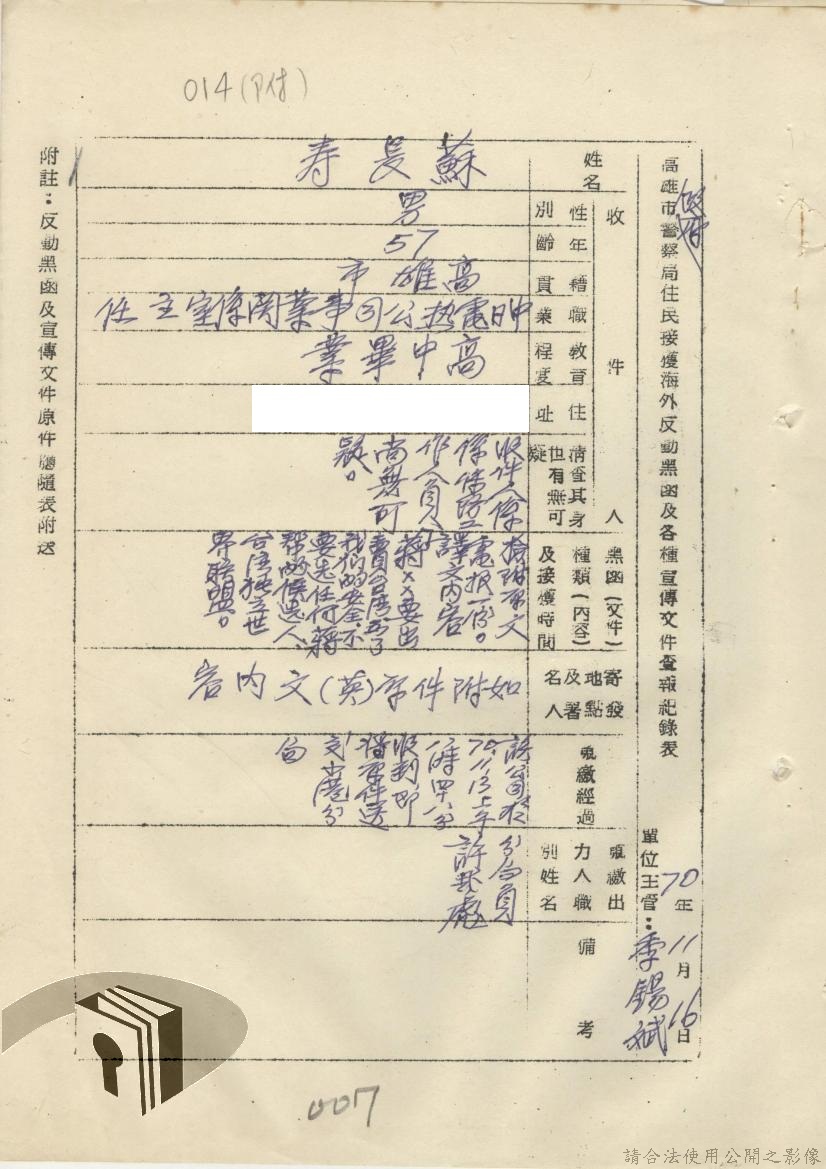 014(附)
高雄市警察局住民接獲海外反動黑函及各種宣傳文件查報紀錄表
70年11月16日
單位主管：季錫斌
收件人
姓名
蘇長壽
性別
男
年齡
57
籍貫
高雄市
職業
中日電熱公司事業關係室主任
教育程度
高中畢業
住址
清查其身
世有無可
疑
收件人係
係保防工
作人員
尚無可
疑。
黑函(文件)
種類(內容)
及接獲時間
檢附英文
電報一份。
譯文內容
蔣××要出
賣台灣為了
我們的安全不
要选任何蔣
幫的候选人
台湾独立世
界联盟。
寄發
地點
及署
名人
如附件字(英)文內容
呈繳經過
該公司於
70.11.13上午
八時四八分
收到即
將原件送
分
局
呈繳出
力人職
別姓名
分局員
許
備考
附註：反動黑函及宣傳文件原件應隨表附送
007
請合法使用公開之影像